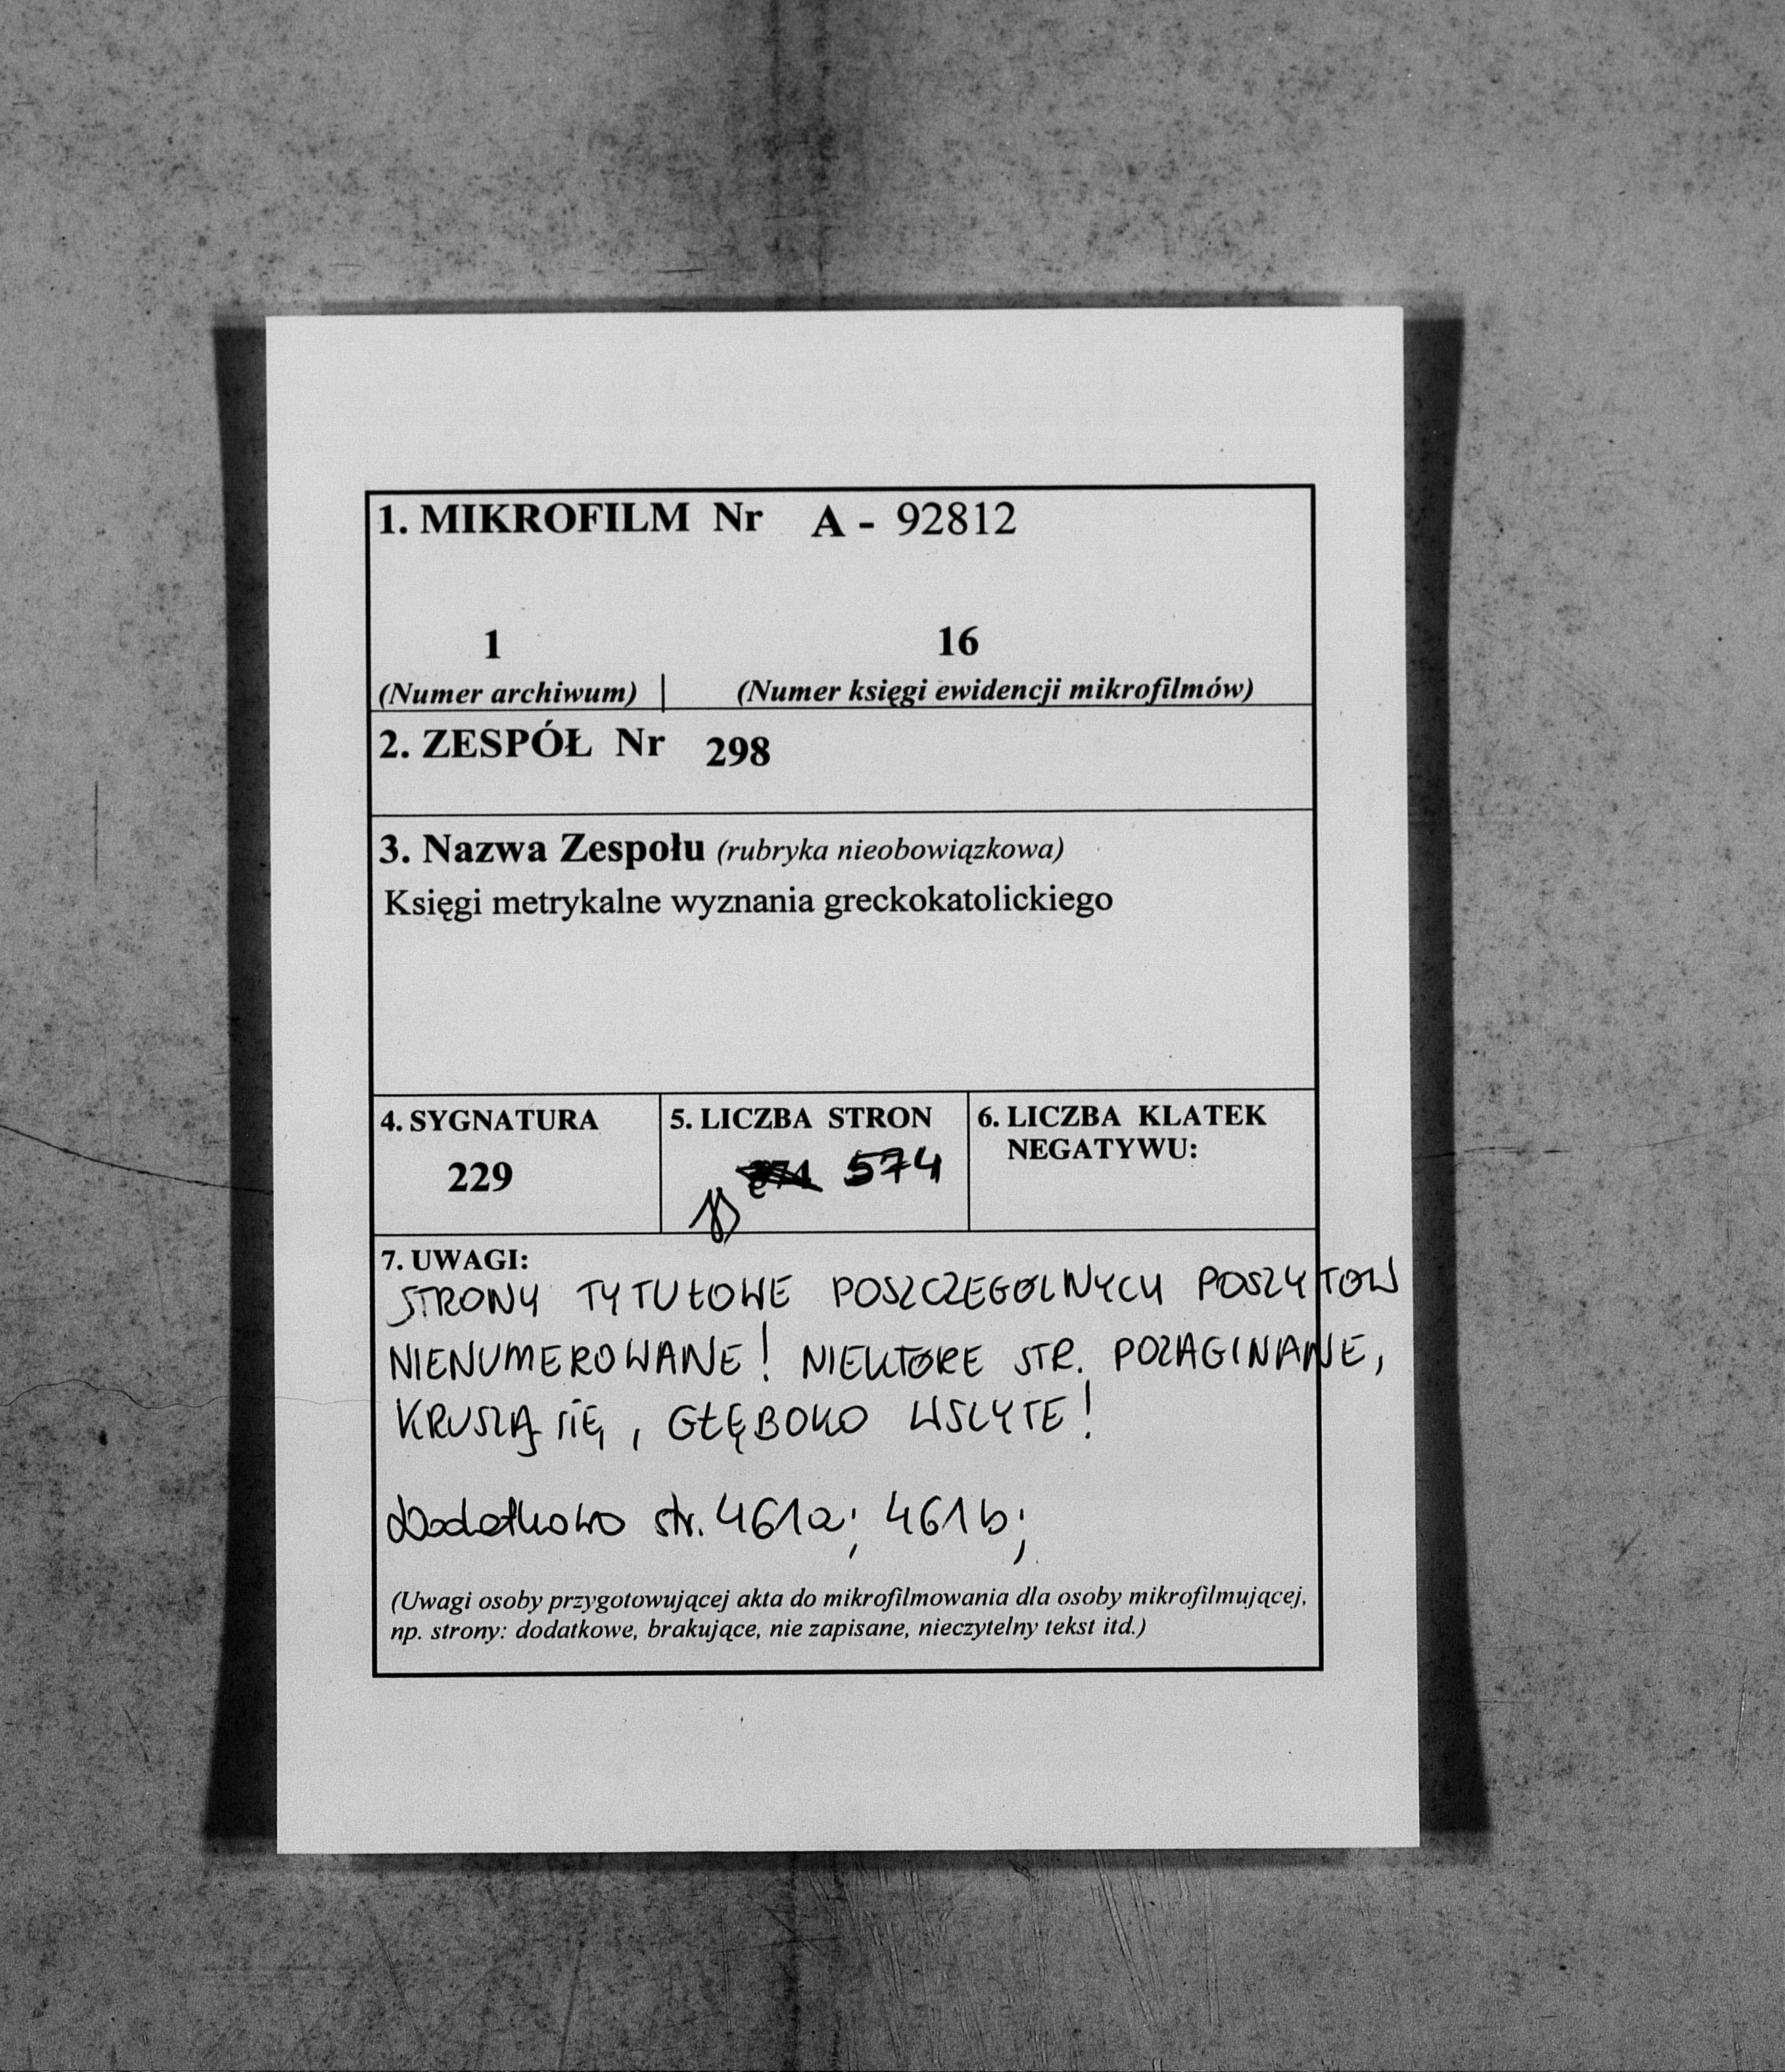 1. MIKROFILM Nr A - 92812
1 16
(Numer archiwum) (Numer księgi ewidencji mikrofilmów)
2. ZESPÓŁ Nr 298
3. Nazwa Zespołu (rubryka nieobowiązkowa)
Księgi metrykalne wyznania greckokatolickiego
4. SYGNATURA
229
5. LICZBA STRON
574
6. LICZBA KLATEK
NEGATYWU:
7. UWAGI:
STRONY TYTUŁOWE POSZCZEGÓLNYCH POSZYTÓW
NIENUMEROWANE! NIEKTÓRE STR. POZAGINANE,
KRUSZĄ SIĘ, GŁĘBOKO WSZYTE!
Dodatkowo str. 461a; 461b;
(Uwagi osoby przygotowującej akta do mikrofilmowania dla osoby mikrofilmującej,
np. strony: dodatkowe, brakujące, nie zapisane, nieczytelny tekst itd.)